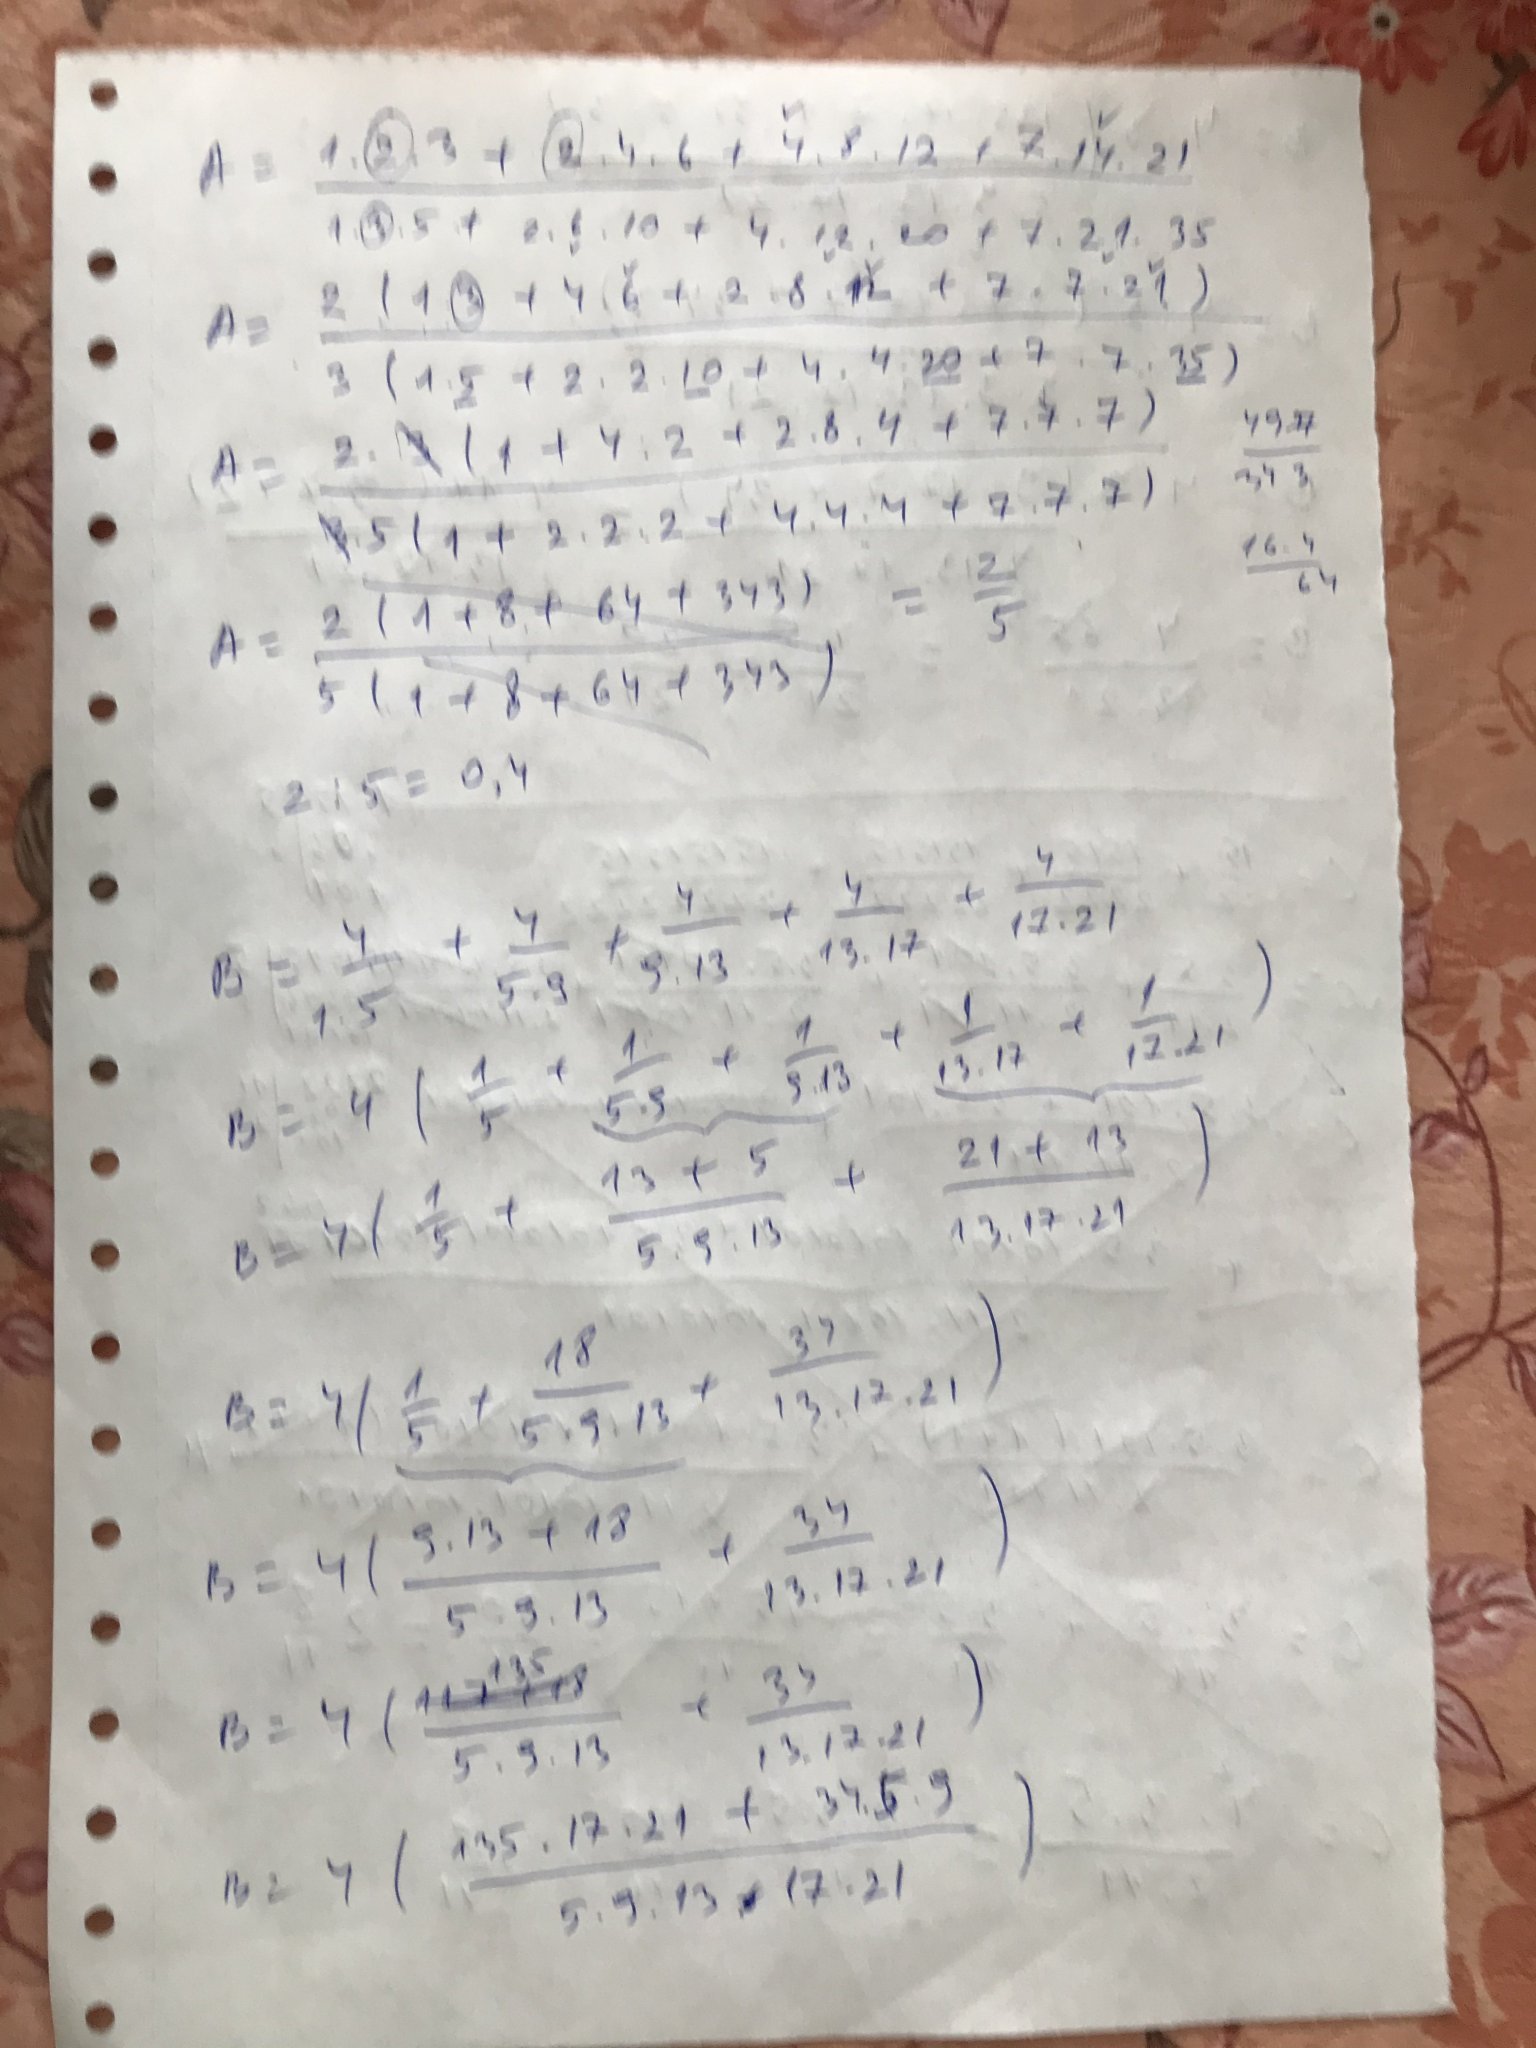 A = (1.2.3 + 2.4.6 + 4.8.12 + 7.14.21) / (1.3.5 + 2.6.10 + 4.12.20 + 7.21.35)
A = 2 (1 3 + 4 6 + 2.8.12 + 7.7.21) / 3 (1.5 + 2.2.10 + 4.4.20 + 7.7.35)
A = 2.3 (1 + 4.2 + 2.8.4 + 7.7.7) / 3.5 (1 + 2.2.2 + 4.4.4 + 7.7.7)
49.7 / 343
16.4 / 64
A = 2 (1 + 8 + 64 + 343) / 5 (1 + 8 + 64 + 343) = 2/5
2 : 5 = 0,4
B = 4/1.5 + 4/5.9 + 4/9.13 + 4/13.17 + 4/17.21
B = 4 ( 1/5 + 1/5.9 + 1/9.13 + 1/13.17 + 1/17.21 )
B = 4 ( 1/5 + (13 + 5)/5.9.13 + (21 + 13)/13.17.21 )
B = 4 ( 1/5 + 18/5.9.13 + 34/13.17.21 )
B = 4 ( (9.13 + 18)/5.9.13 + 34/13.17.21 )
B = 4 ( 135/5.9.13 + 34/13.17.21 )
B = 4 ( (135.17.21 + 34.5.9)/5.9.13.17.21 )